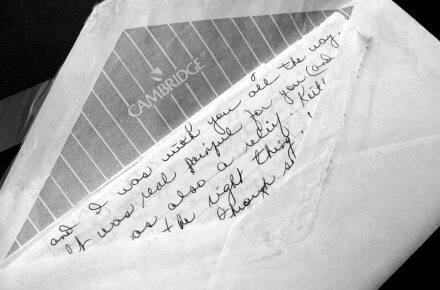 CAMBRIDGE
and I was with you all the way.
It was real painful for you (and
as also a relief. Keith
the right thing
through s